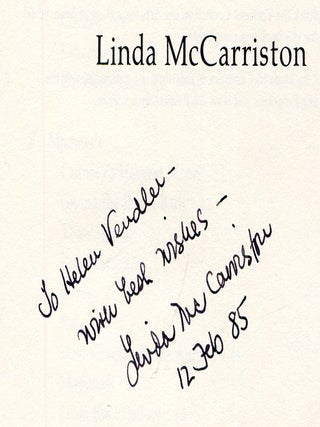 Linda McCarriston
To Helen Vendler–
with best wishes–
Linda McCarriston
12 Feb 85